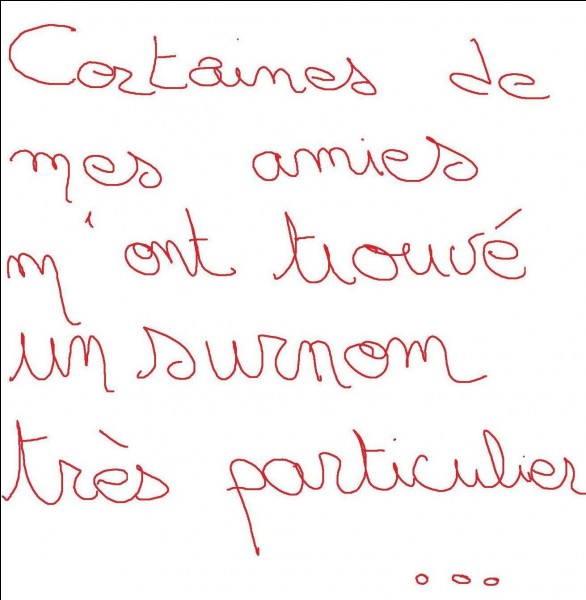 Certaines de
mes amies
m'ont trouvé
un surnom
très particulier
...